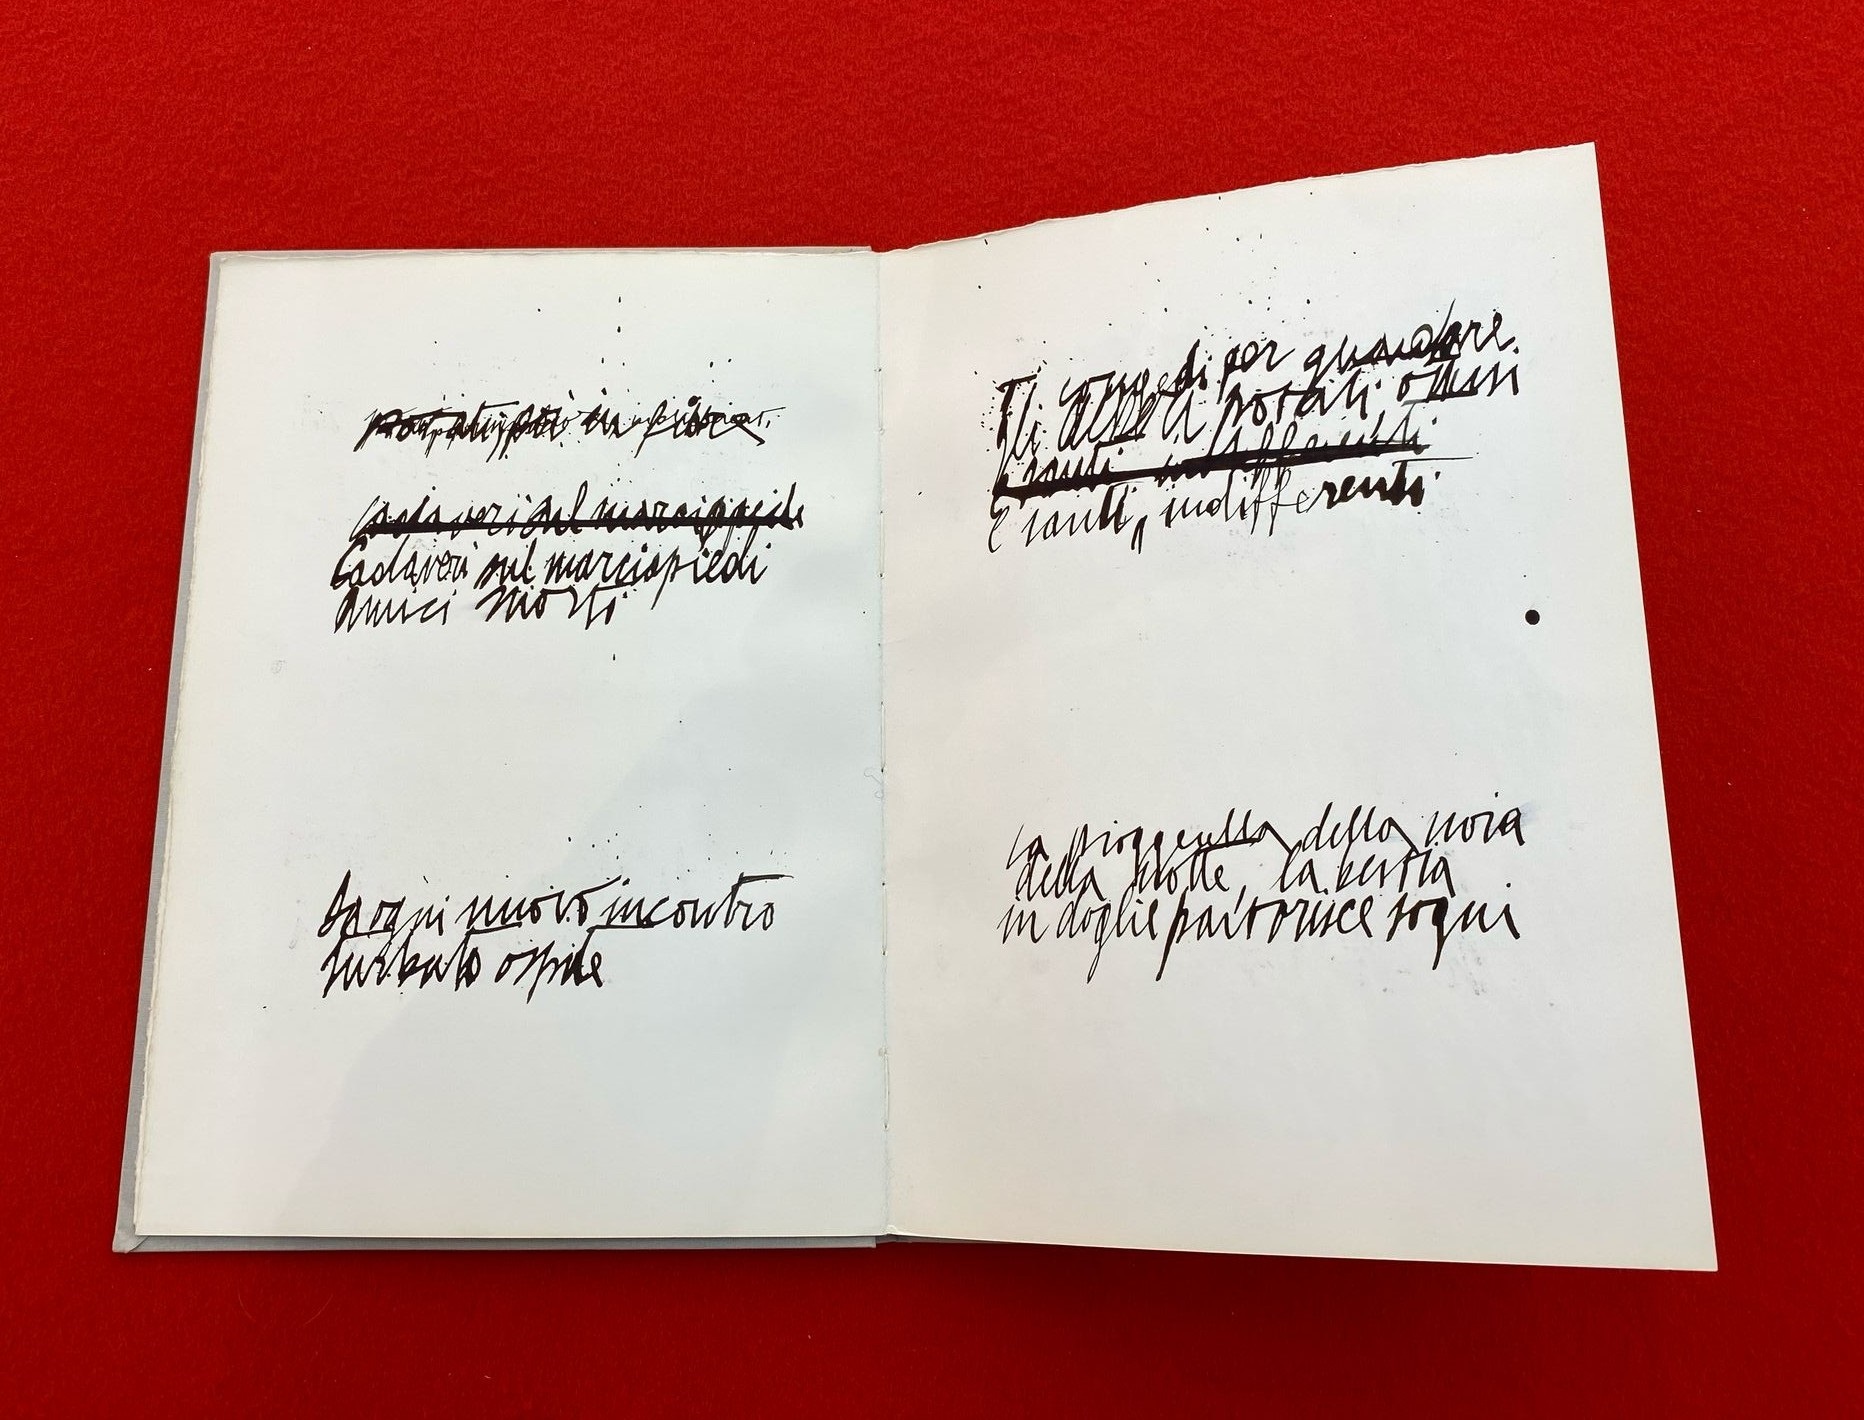 Cadaveri sul marciapiede
Cadaveri sul marciapiedi
amici morti
Da ogni nuovo incontro
turbato ospite
Ti congedi per guardare
gli alberi posati, ossessi
e santi indifferenti
e santi, indifferenti
La pioggerella della noia
della notte, la bestia
in doglie partorisce sogni